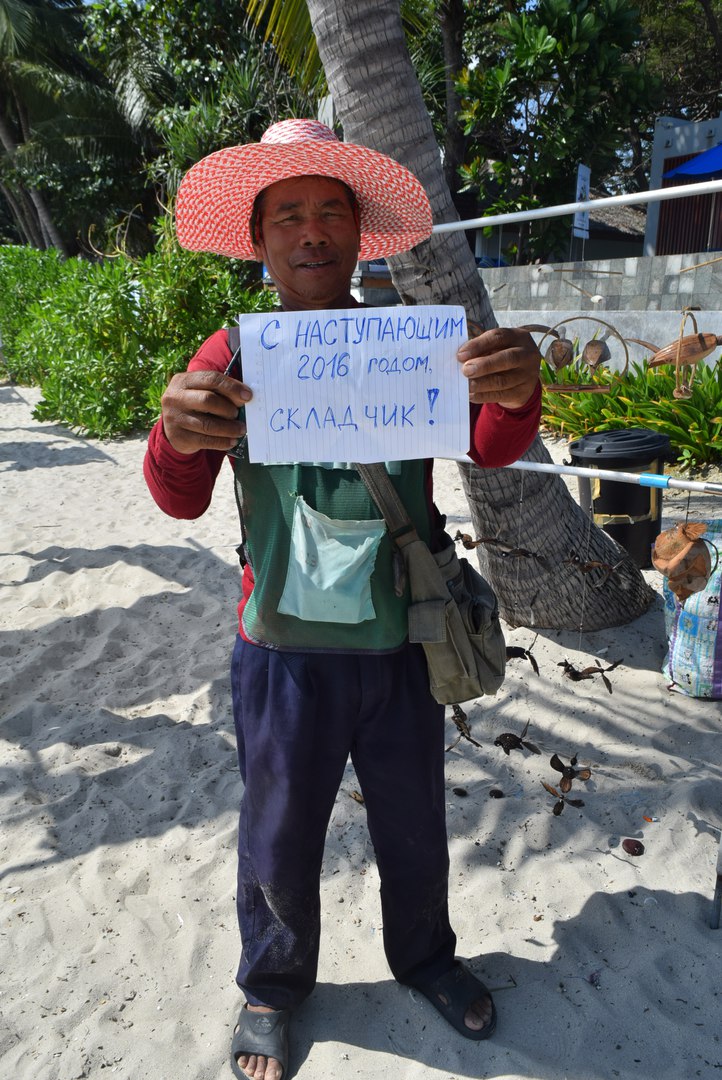 С НАСТУПАЮЩИМ
2016 годом,
СКЛАДЧИК!